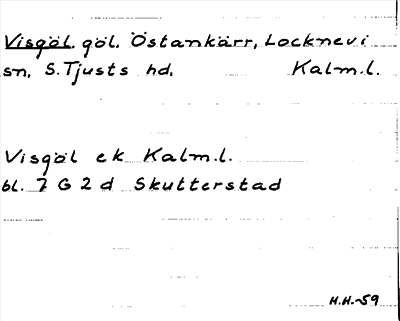 Visgöl. göl. Östankärr, Locknevi
sn. S. Tjusts hd. Kalm.l.
Visgöl ek Kalm.l.
bl. 7 G 2 d Skutterstad
H.H.-59